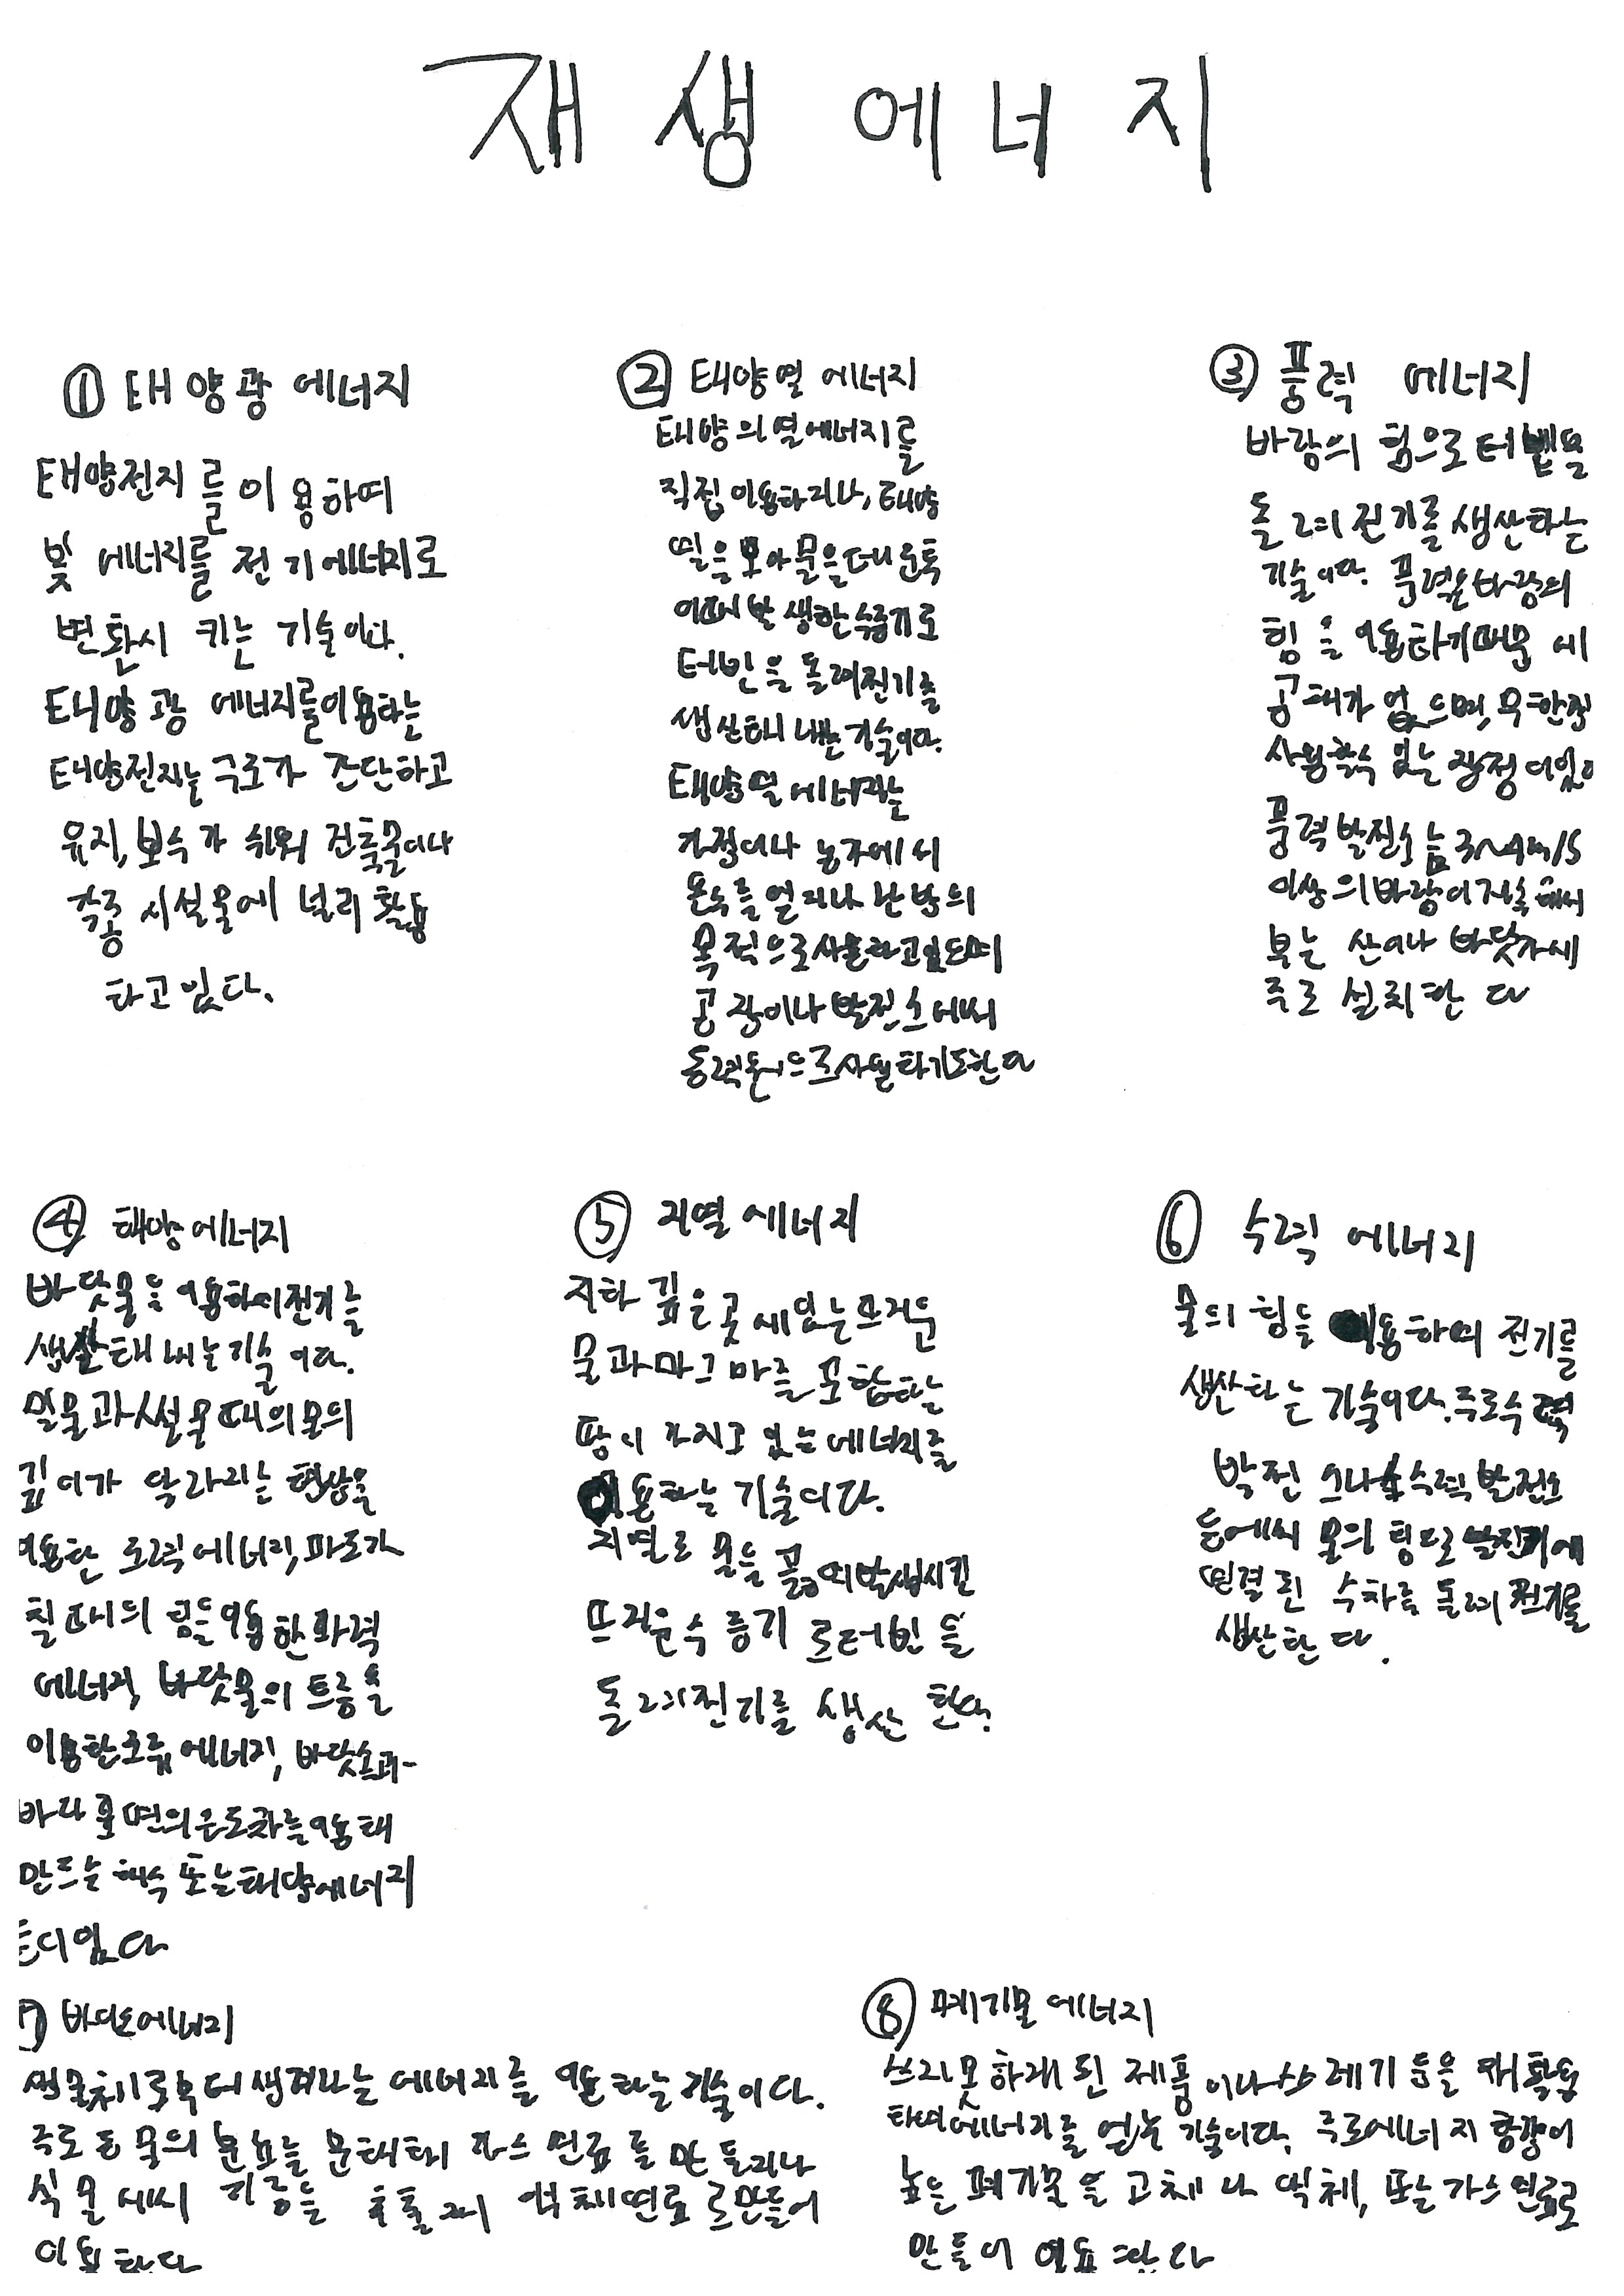 재생에너지
① 태양광 에너지
태양전지를 이용하여
빛 에너지를 전기에너지로
변환시 키는 기술이다.
태양광 에너지를이용하는
태양전지는 구조가 간단하고
유지, 보수가 쉬워 건축물이나
각종 시설물에 널리 활용
하고있다.
② 태양열 에너지
태양의열에너지를
직접이용하거나, 태양
열을모아물을데운뒤
이때발생한수증기로
터빈을돌려전기를
생산해내는기술이다.
태양열에너지는
가정이나 농가에서
온수를얻거나난방의
목적으로사용하고있으며
공장이나발전소에서
동력원으로사용하기도한다
③ 풍력 에너지
바람의 힘으로 터빈을
돌려 전기를 생산하는
기술이다. 풍력은바람의
힘을이용하기때문에
공해가 없으며, 무한정
사용할수 있는 장점이있
풍력발전소는 3~4m/s
이상의바람이지속해서
부는 산이나 바닷가에
주로 설치한다
④ 해양에너지
바닷물을이용하여전기를
생산해내는기술이다.
밀물과썰물때의물의
깊이가 달라지는 현상을
이용한 조력에너지, 파도가
칠때의 힘을이용한파력
에너지, 바닷물의 흐름을
이용한조류에너지, 바닷속과
바다표면의온도차를이용해
만드는 해수 또는해양에너지
등이있다
⑤ 지열에너지
지하 깊은 곳에있는뜨거운
물과마그마를 포함하는
땅이 가지고 있는에너지를
이용하는 기술이다.
지열로 물을 끓여발생시킨
뜨거운수증기 로터빈을
돌려전기를 생산한다.
⑥ 수력 에너지
물의 힘을 이용하여 전기를
생산하는 기술이다. 주로수력
발전 소나 수력발전소
등에서 물의 힘으로 발전기에
연결된 수차를 돌려 전기를
생산한다.
⑦ 바이오에너지
생물체로부터생겨나는에너지를 이용하는 기술이다.
주로동물의 분뇨를 분해해 가스연료를 만들거나
식물에서 기름을 추출해 액체연료로만들어
이용한다
⑧ 폐기물에너지
쓰지못하게된 제품이나쓰레기 등을 재활용
하여에너지를 얻는 기술이다. 주로에너지 함량이
높은 폐기물을 고체나 액체, 또는 가스연료로
만들어 이용한다